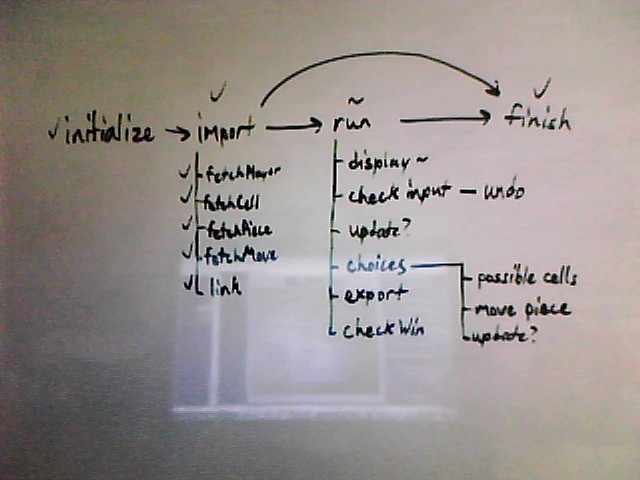 ✓ initialize → ✓ import → ~ run → ✓ finish
✓ fetchMayor
✓ fetchCell
✓ fetchPiece
✓ fetchMove
✓ link
display ~
check input — undo
update?
choices
export
checkWin
possible cells
move piece
update?